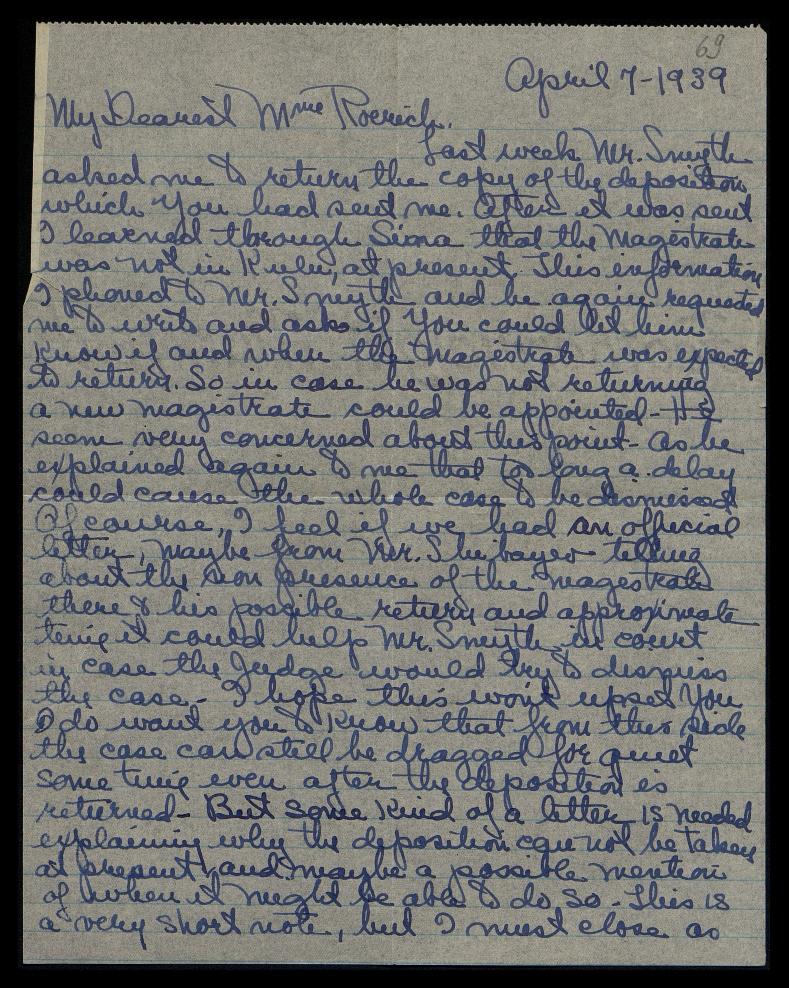 69
April 7-1939
My Dearest Mme Roerich.
Last week Mr. Smyth
asked me to return the copy of the deposition
which You had sent me. After it was sent
I learned through Sina that the Magistrate
was not in Kulu, at present. This information
I phoned to Mr. Smyth and he again requested
me to write and ask if You could let him
know if and when the magistrate was expected
to return. So in case he was not returning
a new magistrate could be appointed - He
seem very concerned about this point - as he
explained again to me that too long a delay
could cause the whole case to be dismissed
Of course, I feel if we had an official
letter, maybe from Mr. Shibayev telling
about the non presence of the magistrate
there & his possible return and approximate
time it could help Mr. Smyth in court
in case the Judge would try to dismiss
the case - I hope this won't upset You
I do want you to know that from this side
the case can still be dragged for quiet
some time even after the deposition is
returned - But some kind of a letter is needed
explaining why the deposition can not be taken
at present, and maybe a possible mention
of when it might be able to do so - This is
a very short note, but I must close as